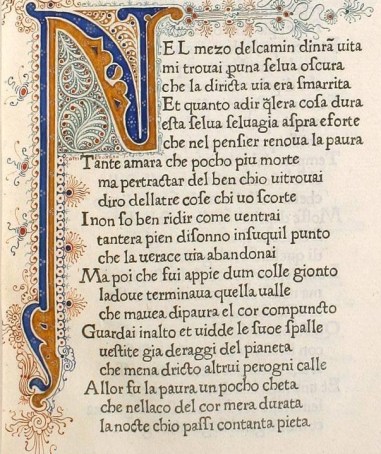 NEL mezo delcamin dinr̃a uita
mi trouai ꝑuna ſelua oſcura
che la diricta uia era ſmarrita
Et quanto adir q̃lera coſa dura
eſta ſelua ſeluagia aſpra eforte
che nel penſier renoua la paura
Tante amara che pocho piu morte
ma pertractar del ben chio uitrouai
diro dellatre coſe chi uo ſcorte
I non ſo ben ridir come uentrai
tantera pien diſonno inſuquil punto
che la uerace uia abandonai
Ma poi che fui appie dum colle gionto
ladoue terminaua quella ualle
che mauea dipaura el cor compuncto
Guardai inalto et uidde le ſuoe ſpalle
ueſtite gia deraggi del pianeta
che mena dricto altrui perogni calle
Allor fu la paura un pocho cheta
che nellaco del cor mera durata
la nocte chio paſſi contanta pieta.